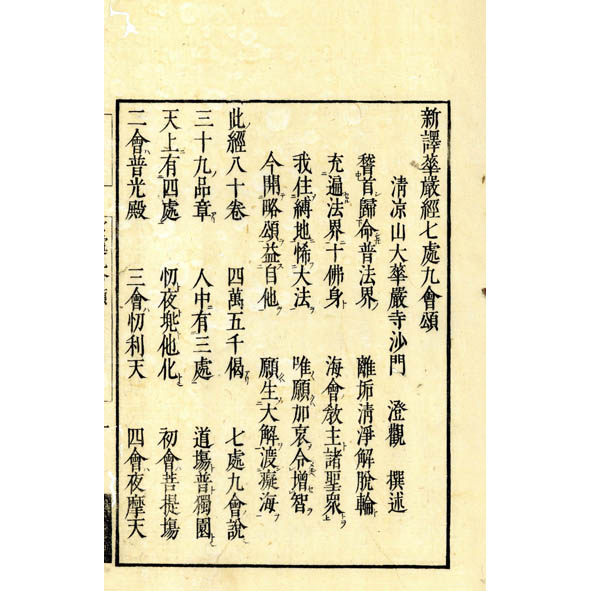 新譯華嚴經七處九會頌
清凉山大華嚴寺沙門 澄觀 撰述
稽首歸命普法界 離垢清淨解脫輪
充遍法界十佛身 海會敎主諸聖衆
我住縛地悕大法 唯願加哀令增智
今開略頌益自他 願生大解渡癡海
此經八十卷 四萬五千偈 七處九會說
三十九品章 人中有三處 道場普獨園
天上有四處 忉夜兠他化 初會菩提場
二會普光殿 三會忉利天 四會夜摩天